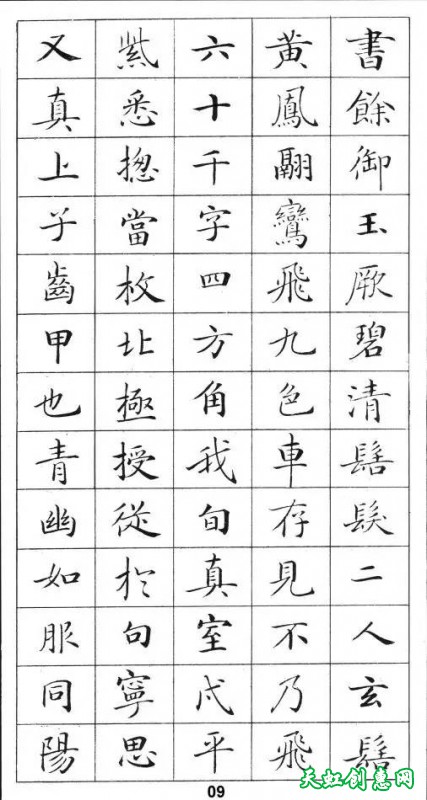 書餘御玉厥碧清髻髮二人玄髻
黃鳳翮鸞飛九色車存見不乃飛
六十千字四方角我旬真室代平
紫悉揔當枚北極授從於句寧思
又真上子齒甲也青幽如服同陽
09
天虹创意网